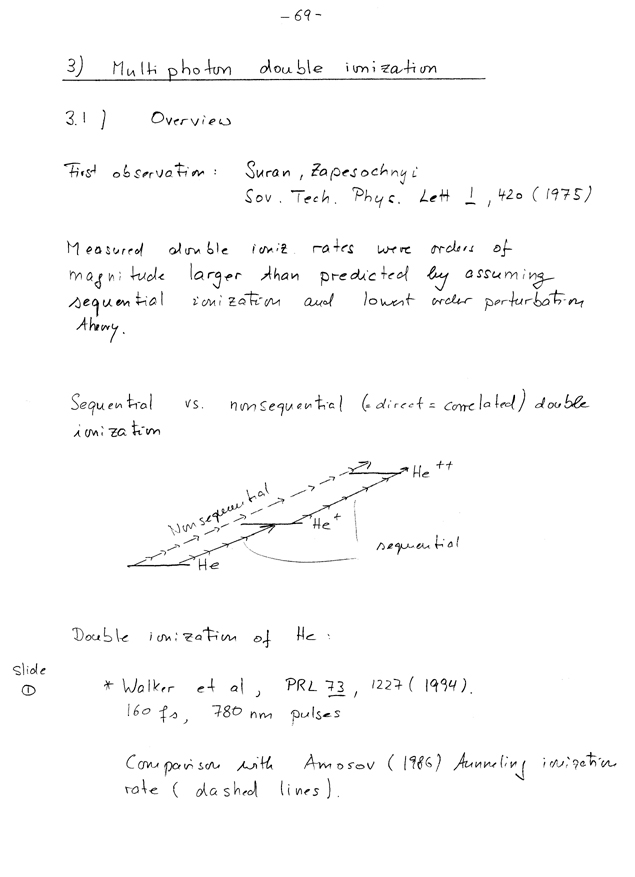 -69-
3) Multiphoton double ionization
3.1) Overview
First observation: Suran, Zapesochnyi
Sov. Tech. Phys. Lett 1, 420 (1975)
Measured double ioniz. rates were orders of
magnitude larger than predicted by assuming
sequential ionization and lowest order perturbation
theory.
Sequential vs. nonsequential (= direct = correlated) double
ionization
He++
Nonsequential
He+
sequential
He
Double ionization of He:
Slide
①
* Walker et al, PRL 73, 1227 (1994).
160 fs, 780 nm pulses
Comparison with Amosov (1986) tunneling ionization
rate (dashed lines).